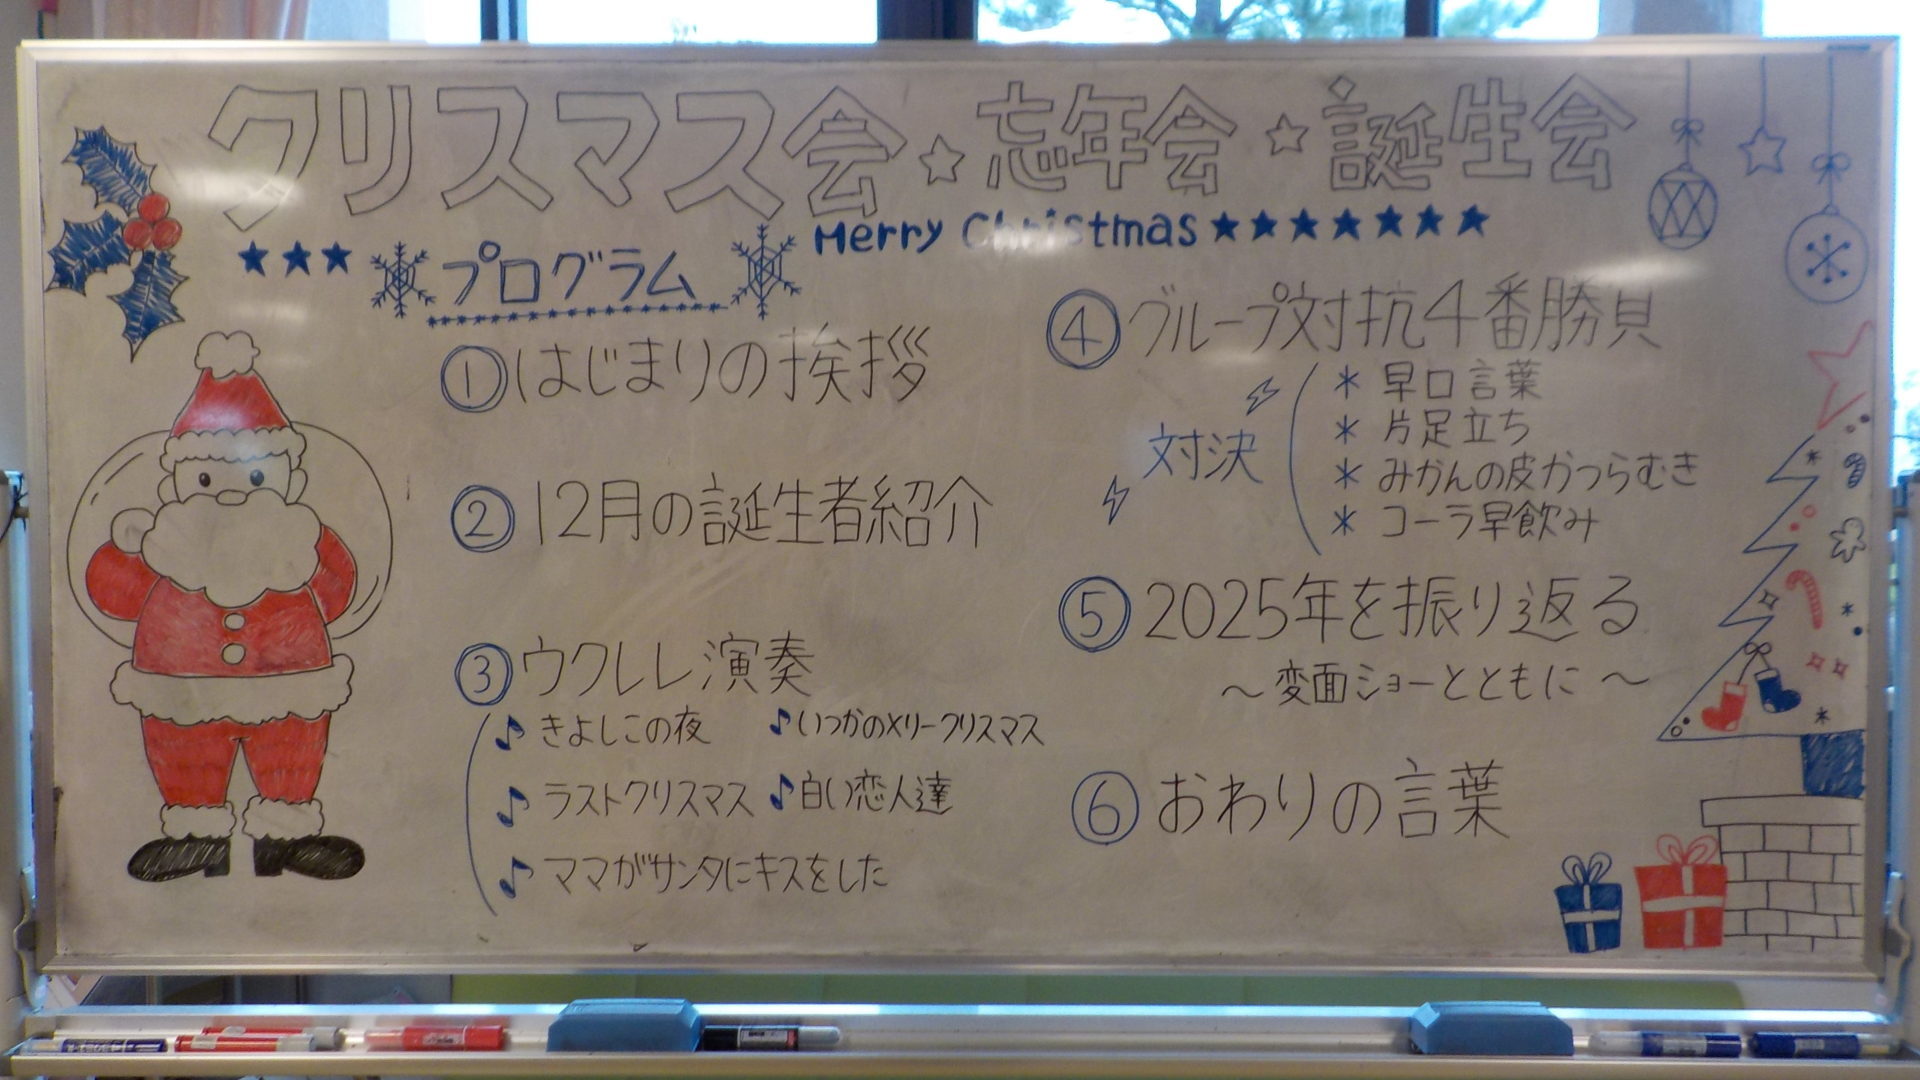 クリスマス会☆忘年会☆誕生会
Merry Christmas★★★★★★★
★★★プログラム
①はじまりの挨拶
②12月の誕生者紹介
③ウクレレ演奏
♪きよしこの夜 ♪いつかのメリークリスマス
♪ラストクリスマス ♪白い恋人達
♪ママがサンタにキスをした
④グループ対抗4番勝負
対決
＊早口言葉
＊片足立ち
＊みかんの皮かつらむき
＊コーラ早飲み
⑤2025年を振り返る
～変面ショーとともに～
⑥おわりの言葉